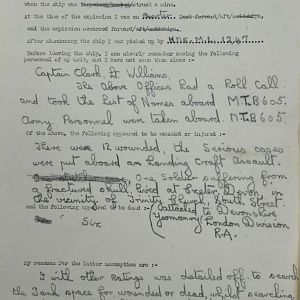 when the ship was torpedoed/bombed/struck a mine.
At the time of the explosion I was on Look forward/aft/
and the explosion occurred forward/aft/
After abandoning the ship I was picked up by
Before leaving the ship, I can clearly remember seeing the following
personnel of my unit, and I have not seen them since :-
Captain Clark, Lt Williams,
The above Officers had a Roll Call
and took the List of Names aboard M.T.B 605.
Army Personnel were taken aboard M.T.B 605
Of the above, the following appeared to be wounded or injured :-
There were 12 wounded, the Serious cases
were put aboard an Landing Craft Assault.
One Soldier suffering from
a fractured skull lived at Exeter, Devon, in
the vicinity of Trinity Church, South Street.
and the following appeared to be dead :-
(attached to Devonshire
Six
Yeomanry London Division
R.A.
My reasons for the latter assumption are :-
I with other Ratings was detailed off to search
the Tank space for wounded or dead, whilst searching